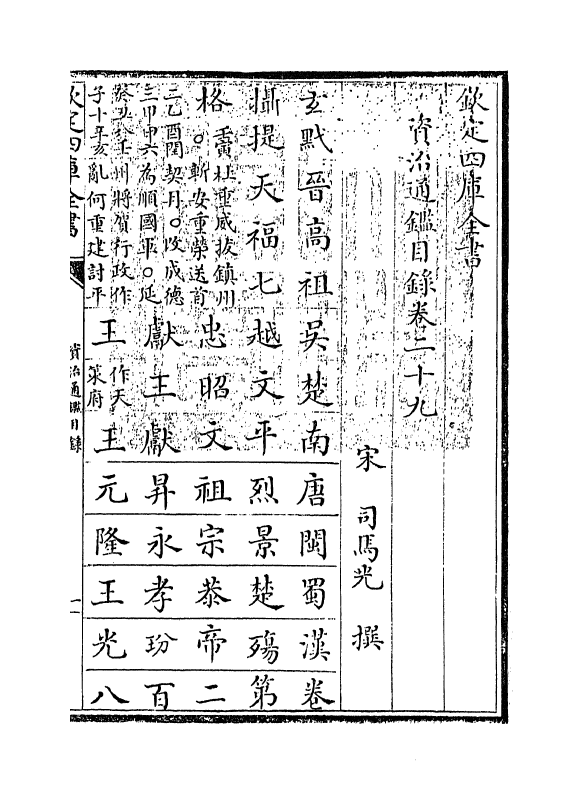 欽定四庫全書
資治通鑑目錄卷二十九
宋 司馬光 撰
玄黓晉高祖吳楚南唐閩蜀漢卷
攝提天福七越文平烈景楚殤第
格 壬寅杜重威拔鎮州
。斬安重榮送首
忠昭文祖宗恭帝二
二乙酉閏契丹。改成德
三甲申六為順國軍。延
獻王獻昇永孝玢百
癸丑 壬州將賀行政作
子十辛亥亂何重建討平
王 作天
策府
王元隆王光八
欽定四庫全書
資治通鑑目錄
一